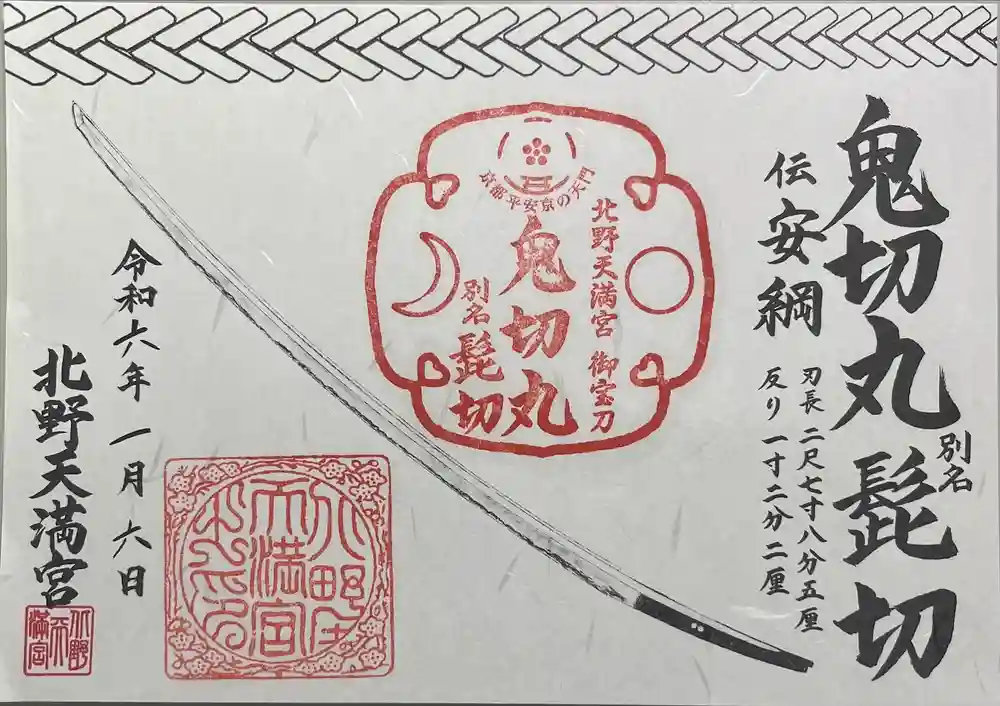 鬼切丸 別名 髭切
伝安綱
刃長 二尺七寸八分五厘
反り 一寸二分二厘
京都平安京の天門
北野天満宮 御宝刀
鬼切丸
別名 髭切
令和六年 一月 六日
北野天満宮
北野天満宮